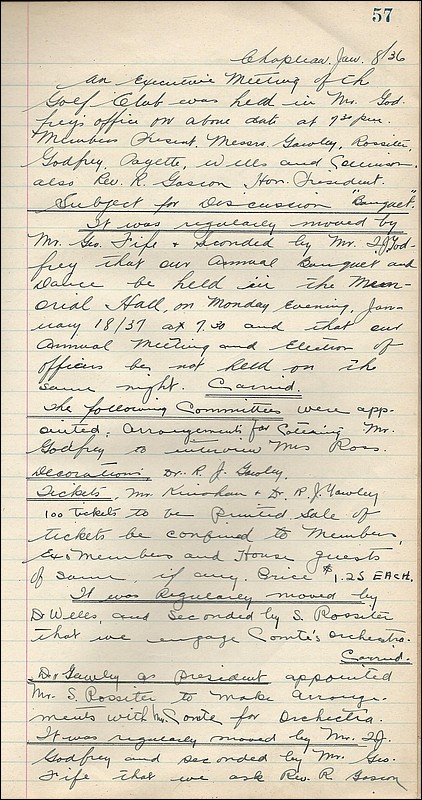 57
Chapleau Jan. 8/36
An Executive Meeting of Ch
Golf Club was held in Mr. God-
frey's office on above date at 7.30 p.m.
Members Present, Messrs. Gawley, Rossiter,
Godfrey, Payette, Wills and
also Rev. R. Gascon Hon. President.
Subject for Discussion "Banquet".
It was regularly moved by
Mr. Geo. Fife & seconded by Mr. T.J. God-
frey that our Annual Banquet and
Dance be held in the Mem-
orial Hall, on Monday Evening, Jan-
uary 18/37 at 7.30 and that our
Annual Meeting and Election of
officers be not held on the
same night. Carried.
The following Committees were app-
ointed, Arrangements for Catering Mr.
Godfrey to interview Mrs Ross.
Decorations, Dr. R. J. Gawley.
Tickets, Mr. Kinahan & Dr. R. J. Gawley
100 tickets to be Printed Sale of
tickets be confined to Members,
Ex Members and House guests
of same, if any. Price $1.25 EACH.
It was Regularly moved by
D Wells, and Seconded by S. Rossiter
that we engage Comte's orchestra.
Carried.
Dr Gawley as President appointed
Mr. S. Rossiter to make arrange-
ments with Mr. Comte for Orchestra.
It was regularly moved by Mr. T.J.
Godfrey and seconded by Mr. Geo.
Fife that we ask Rev. R Gascon